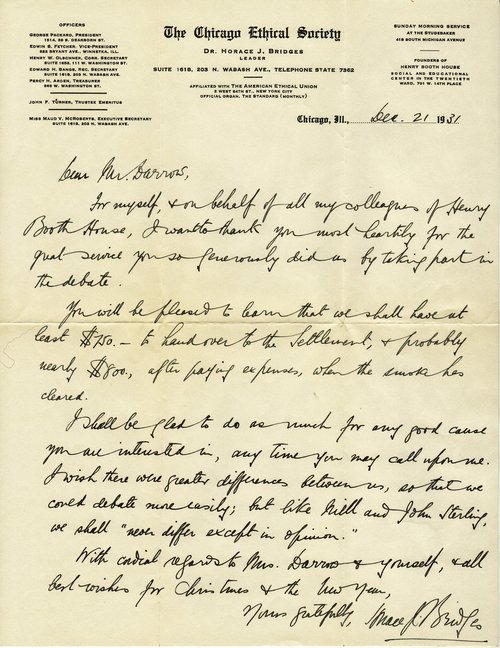 OFFICERS
GEORGE PACKARD, PRESIDENT
EDWIN S. FETCHER, VICE-PRESIDENT
582 BRYANT AVE., WINNETKA, ILL.
HENRY W. OLSCHNER, COR. SECRETARY
SUITE 1655, 111 W. WASHINGTON ST.
EDWARD H. BANGS, REC. SECRETARY
SUITE 1618, 203 N. WABASH AVE.
PERCY H. ARDEN, TREASURER
JOHN F. TURNER, TRUSTEE EMERITUS
MISS MAUD V. MCROBERTS, EXECUTIVE SECRETARY
SUITE 1618, 203 N. WABASH AVE.
The Chicago Ethical Society
DR. HORACE J. BRIDGES
LEADER
SUITE 1618, 203 N. WABASH AVE., TELEPHONE STATE 7362
AFFILIATED WITH THE AMERICAN ETHICAL UNION
2 WEST 64TH ST., NEW YORK CITY
OFFICIAL ORGAN, THE STANDARD (MONTHLY)
SUNDAY MORNING SERVICE
AT THE STUDEBAKER
418 SOUTH MICHIGAN AVENUE
FOUNDERS OF
HENRY BOOTH HOUSE
SOCIAL AND EDUCATIONAL
CENTER IN THE TWENTIETH
WARD, 701 W. 14TH PLACE
Chicago, Ill., Dec. 21 1931
Dear Mr. Darrow,
For myself, & on behalf of all my colleagues of Henry
Booth House, I want to thank you most heartily for the
great service you so generously did us by taking part in
the debate.
You will be pleased to learn that we shall have at
least $750.— to hand over to the Settlement, & probably
nearly $800, after paying expenses, when the smoke has
cleared.
I shall be glad to do as much for any good cause
you are interested in, any time you may call upon me.
I wish there were greater differences between us, so that we
could debate more easily; but like Mill and John Sterling,
we shall "never differ except in opinion."
With cordial regards to Mrs. Darrow & yourself, & all
best wishes for Christmas & the New Year,
Yours gratefully, Horace J. Bridges